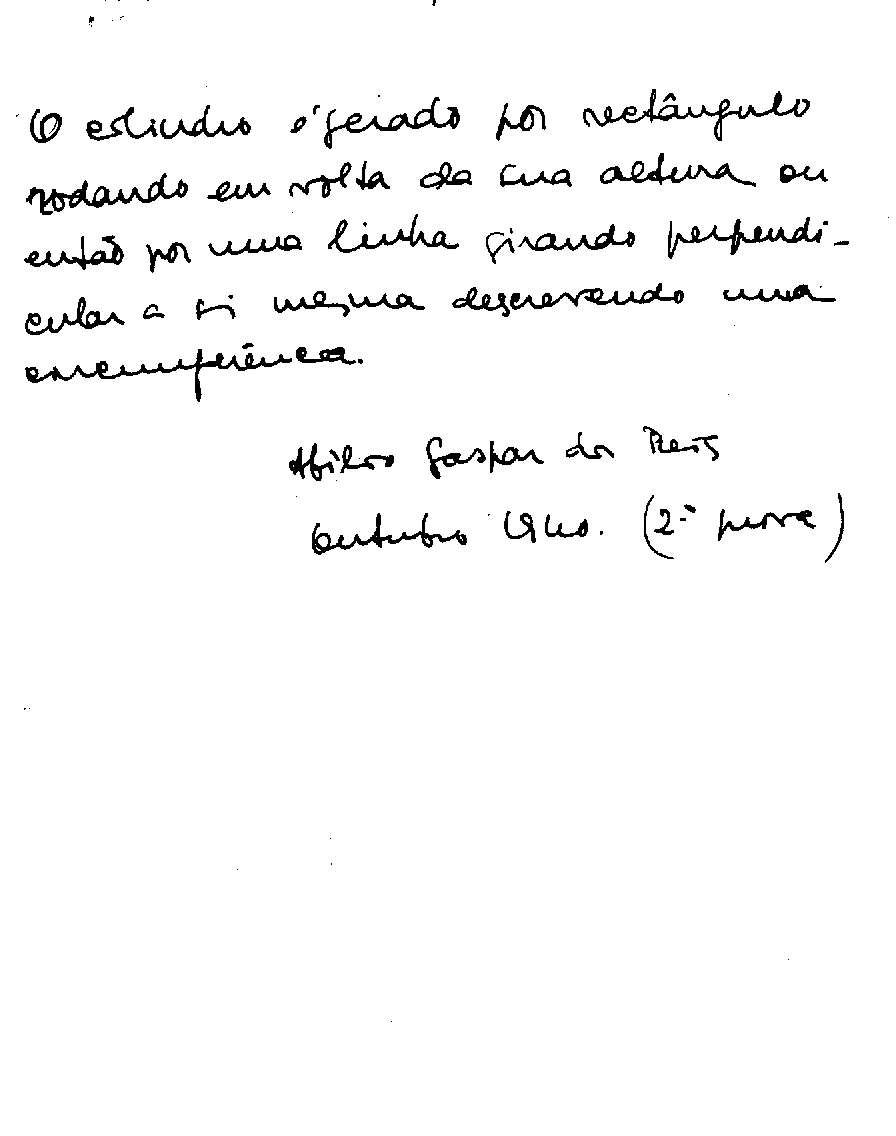 O cilindro é gerado por rectângulo
rodando em volta da sua altura ou
então por uma linha girando perpendi-
cular a si mesma descrevendo uma
circumferência.
Abilio Gaspar dos Reis
Outubro (2.ª prova)